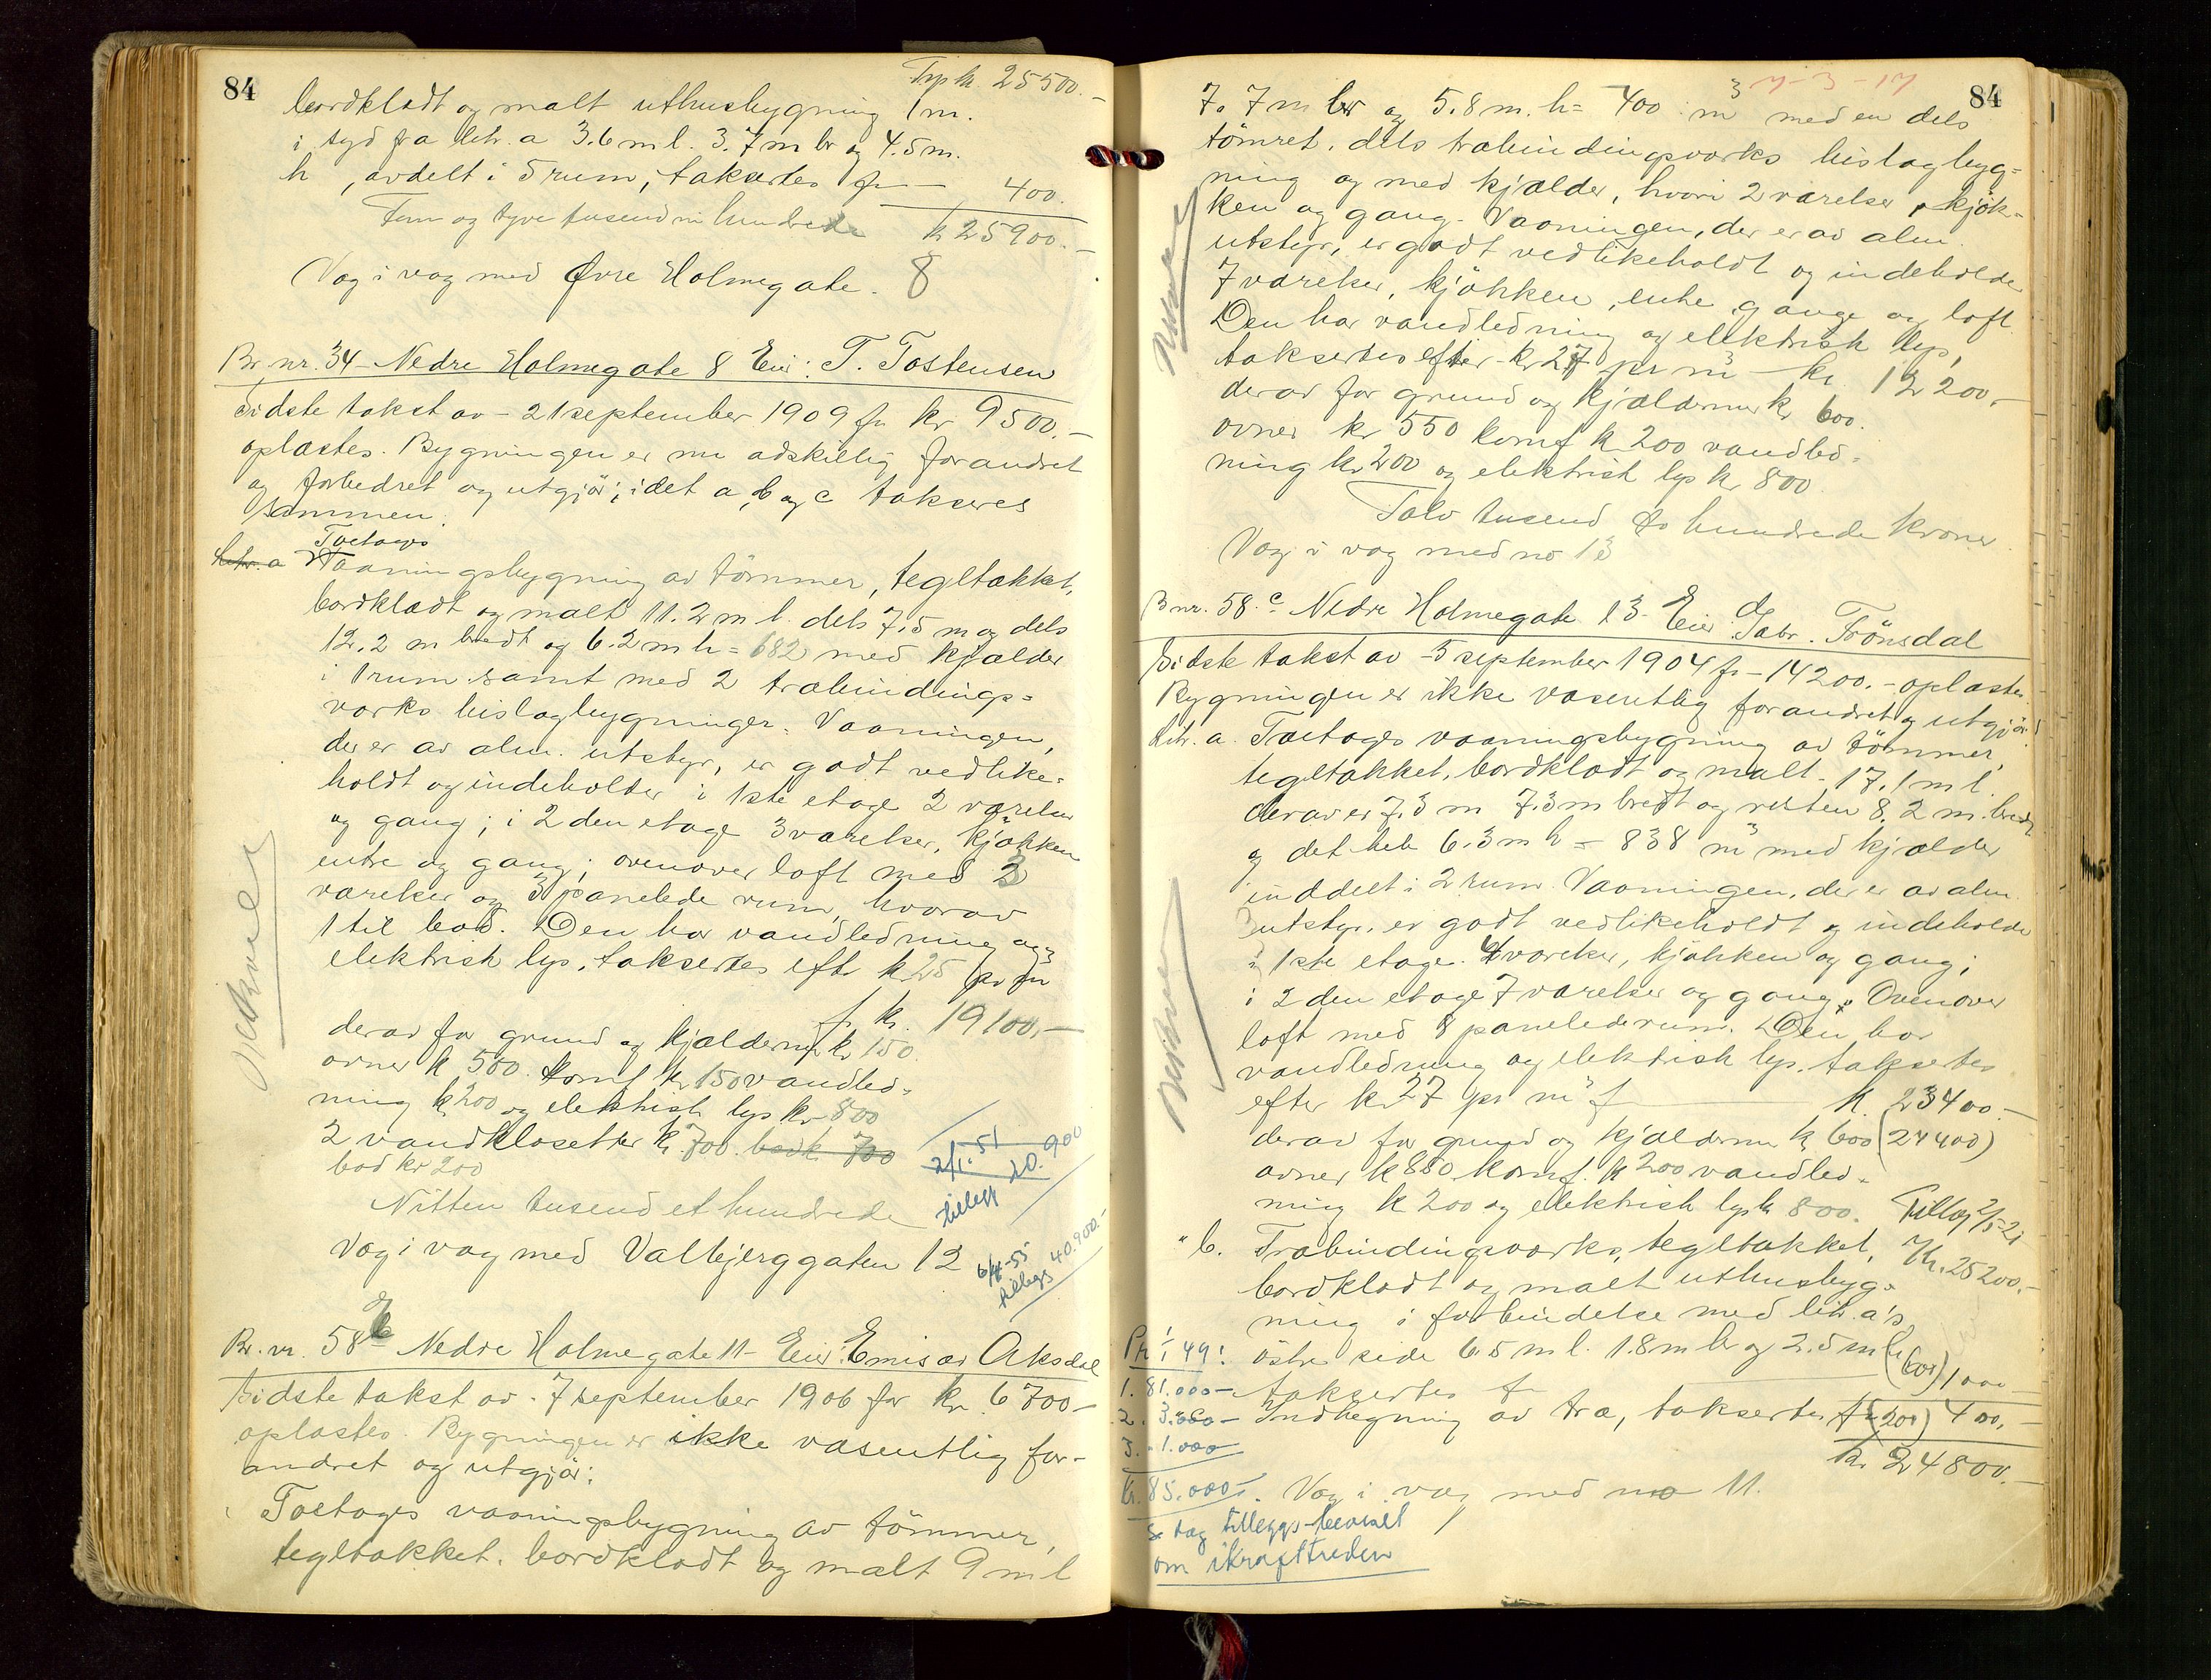 84
Trp kr 25500.-
bordklædt og malt uthusbygning 1 m.
i syd fra litr. a 3.6 m l. 3.7 m br og 4.5 m.
h, avdelt i 5 rum, takseres for — 400.
Fem og tyve tusend ni hundrede kr 25900.-
Væg i væg med Øvre Holmegate 8
Br. nr. 34 - Nedre Holmegate 8 Eier: T. Tostensen
Sidste takst av - 21 september 1909 for kr 9500.-
oplæstes. Bygningen er nu adskillig forandret
og forbedret og utgjör; idet a, b og c takseres
sammen.
Toetages
Litr. a Vaaningsbygning av tömmer, tegltækket,
bordklædt og malt 11.2 m l. dels 7.5 m og dels
12.2 m bredt og 6.2 m h = 682 med kjælder
i 1 rum samt med 2 træbindings-
værks bislagbygninger. Vaaningen,
der er av alm. utstyr, er godt vedlike-
holdt og indeholder i 1ste etage 2 værelser
og gang; i 2den etage 3 værelser, kjøkken
entre og gang; ovenover loft med 3
værelser og 3 panelede rum, hvorav
1 til bad. Den har vandledning og
elektrisk lys, takseres efter kr 25 pr m3
for kr. 19100,-
derav for grund og kjældermur kr 150.
ovner kr 500. komf kr 150 vandled-
ning kr 200 og elektrisk lys kr 800
2 vandklosetter kr. 700. bad k 700
bad kr 200
2/1.51
tillegg 20.900
Nitten tusend et hundrede
Væg i væg med Valbjerggaten 12
6/4-55
tillegg 40.900.-
Br. nr. 58 b Nedre Holmegate 11 - Eier: Emis av Aksdal
Sidste takst av - 7 september 1906 for kr. 6700-
oplæstes. Bygningen er ikke væsentlig for-
andret og utgjör:
Toetages vaaningsbygning av tömmer,
tegltækket, bordklædt og malt 9 m l
7-3-17
84
7. 7 m br og 5.8 m. h = 400 m3 med en dels
tömret, dels træbindingsværks bislagbyg-
ning og med kjælder, hvori 2 værelser, kjök-
ken og gang. Vaaningen, der er av alm.
utstyr, er godt vedlikeholdt og indeholder
7 værelser, kjökken, entre, gange og loft.
Den har vandledning og elektrisk lys,
takseres efter kr 27 pr m3 — kr. 12200,-
derav for grund og kjældermur kr 600.
ovner kr 550 komf kr 200 vandled-
ning kr 200 og elektrisk lys kr 800
Tolv tusend to hundrede kroner
Væg i væg med no 13
Bnr. 58 c Nedre Holmegate 13 - Eier: Gabr. Trönsdal
Sidste takst av - 5 september 1904 for - 14200.- oplæstes
Bygningen er ikke væsentlig forandret og utgjör:
Litr. a. Toetages vaaningsbygning av tömmer,
tegltækket, bordklædt og malt - 17.1 m l.
derav er 7.3 m 7.3 m bredt og resten 8.2 m. bredt
og det hele 6.3 m h = 838 m3 med kjælder
inddelt i 2 rum. Vaaningen, der er av alm.
utstyr, er godt vedlikeholdt og indeholder
i 1ste etage 4 værelser, kjøkken og gang;
i 2den etage 7 værelser og gang. Ovenover
loft med 8 panelede rum. Den har
vandledning og elektrisk lys, takseres
efter kr 27 pr m3 for — kr. 23400.-
derav for grund og kjældermur kr 600 (24400)
ovner kr 850 komf. kr 200 vandled-
ning kr 200 og elektrisk lys kr 800. Tillæg 2/5-21
" b. Træbindingsværks, tegltækket, Kr. 25200.-
bordklædt og malt uthusbyg-
ning i forbindelse med litr. a's
östre side 6.5 m l. 1.8 m br og 2.5 m h
takseres for — (600) 1000
Indhegning av træ, takseres for (200) 400,-
kr. 24800.-
Væg i væg med no 11.
Pr 1/1 49:
1. 81.000-
2. 3.000-
3. 1.000
kr. 85.000.-
Se dog tilleggs-beviset
om ikrafttreden